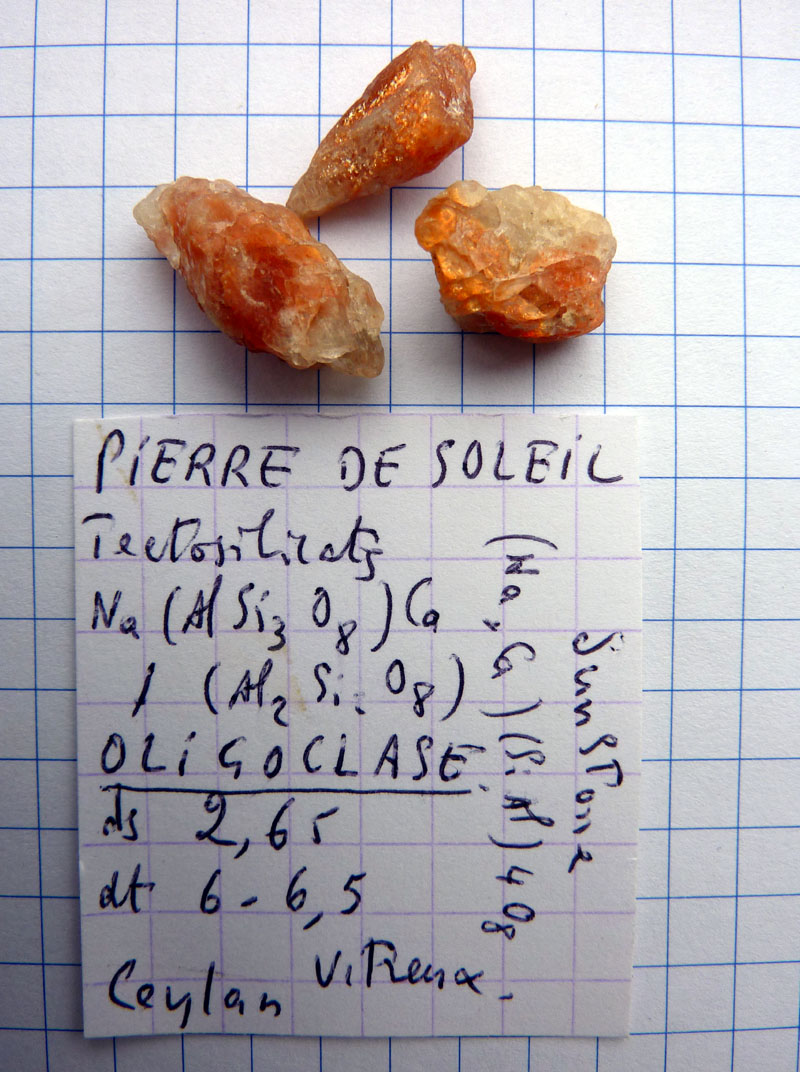 PiERRE DE SOLEiL
Tectosilicates
Na (Al Si3 O8) Ca
/ (Al2 Si2 O8)
OLiGOCLASE.
ds 2,65
dt 6 - 6,5
Ceylan Vitreux.
(Na, Ca) (Si Al) 4 O8
SunSTone